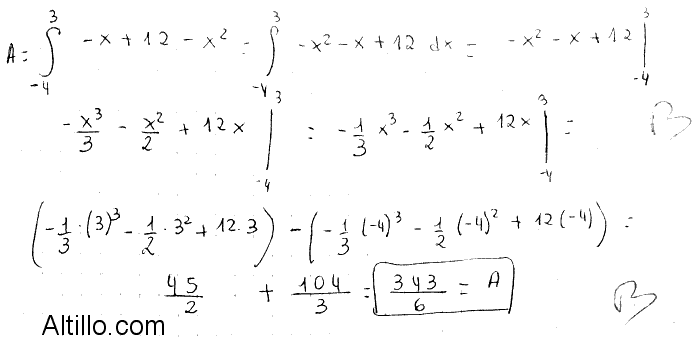 A = ∫₋₄³ -x + 12 - x² = ∫₋₄³ -x² - x + 12 dx = -x² - x + 12 |₋₄³
-x³/3 - x²/2 + 12x |₋₄³ = -1/3 x³ - 1/2 x² + 12x |₋₄³ =
B
(-1/3 · (3)³ - 1/2 · 3² + 12 · 3) - (-1/3 (-4)³ - 1/2 (-4)² + 12 (-4)) =
45/2 + 104/3 = 343/6 = A
B
Altillo.com